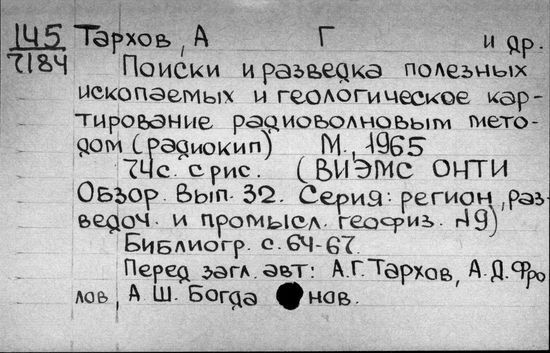 145 Тархов, А Г и др.
7184 Поиски и разведка полезных
ископаемых и геологическое кар-
тирование радиоволновым мето-
дом (радиокип) М., 1965
74с. с рис. (ВИЭМС ОНТИ
Обзор. Вып. 32. Серия: регион, раз-
ведоч. и промысл. геофиз. №9)
Библиогр. с. 64-67.
Перед загл. авт: А.Г. Тархов, А.Д. Фро
лов, А. Ш. Богда нов.